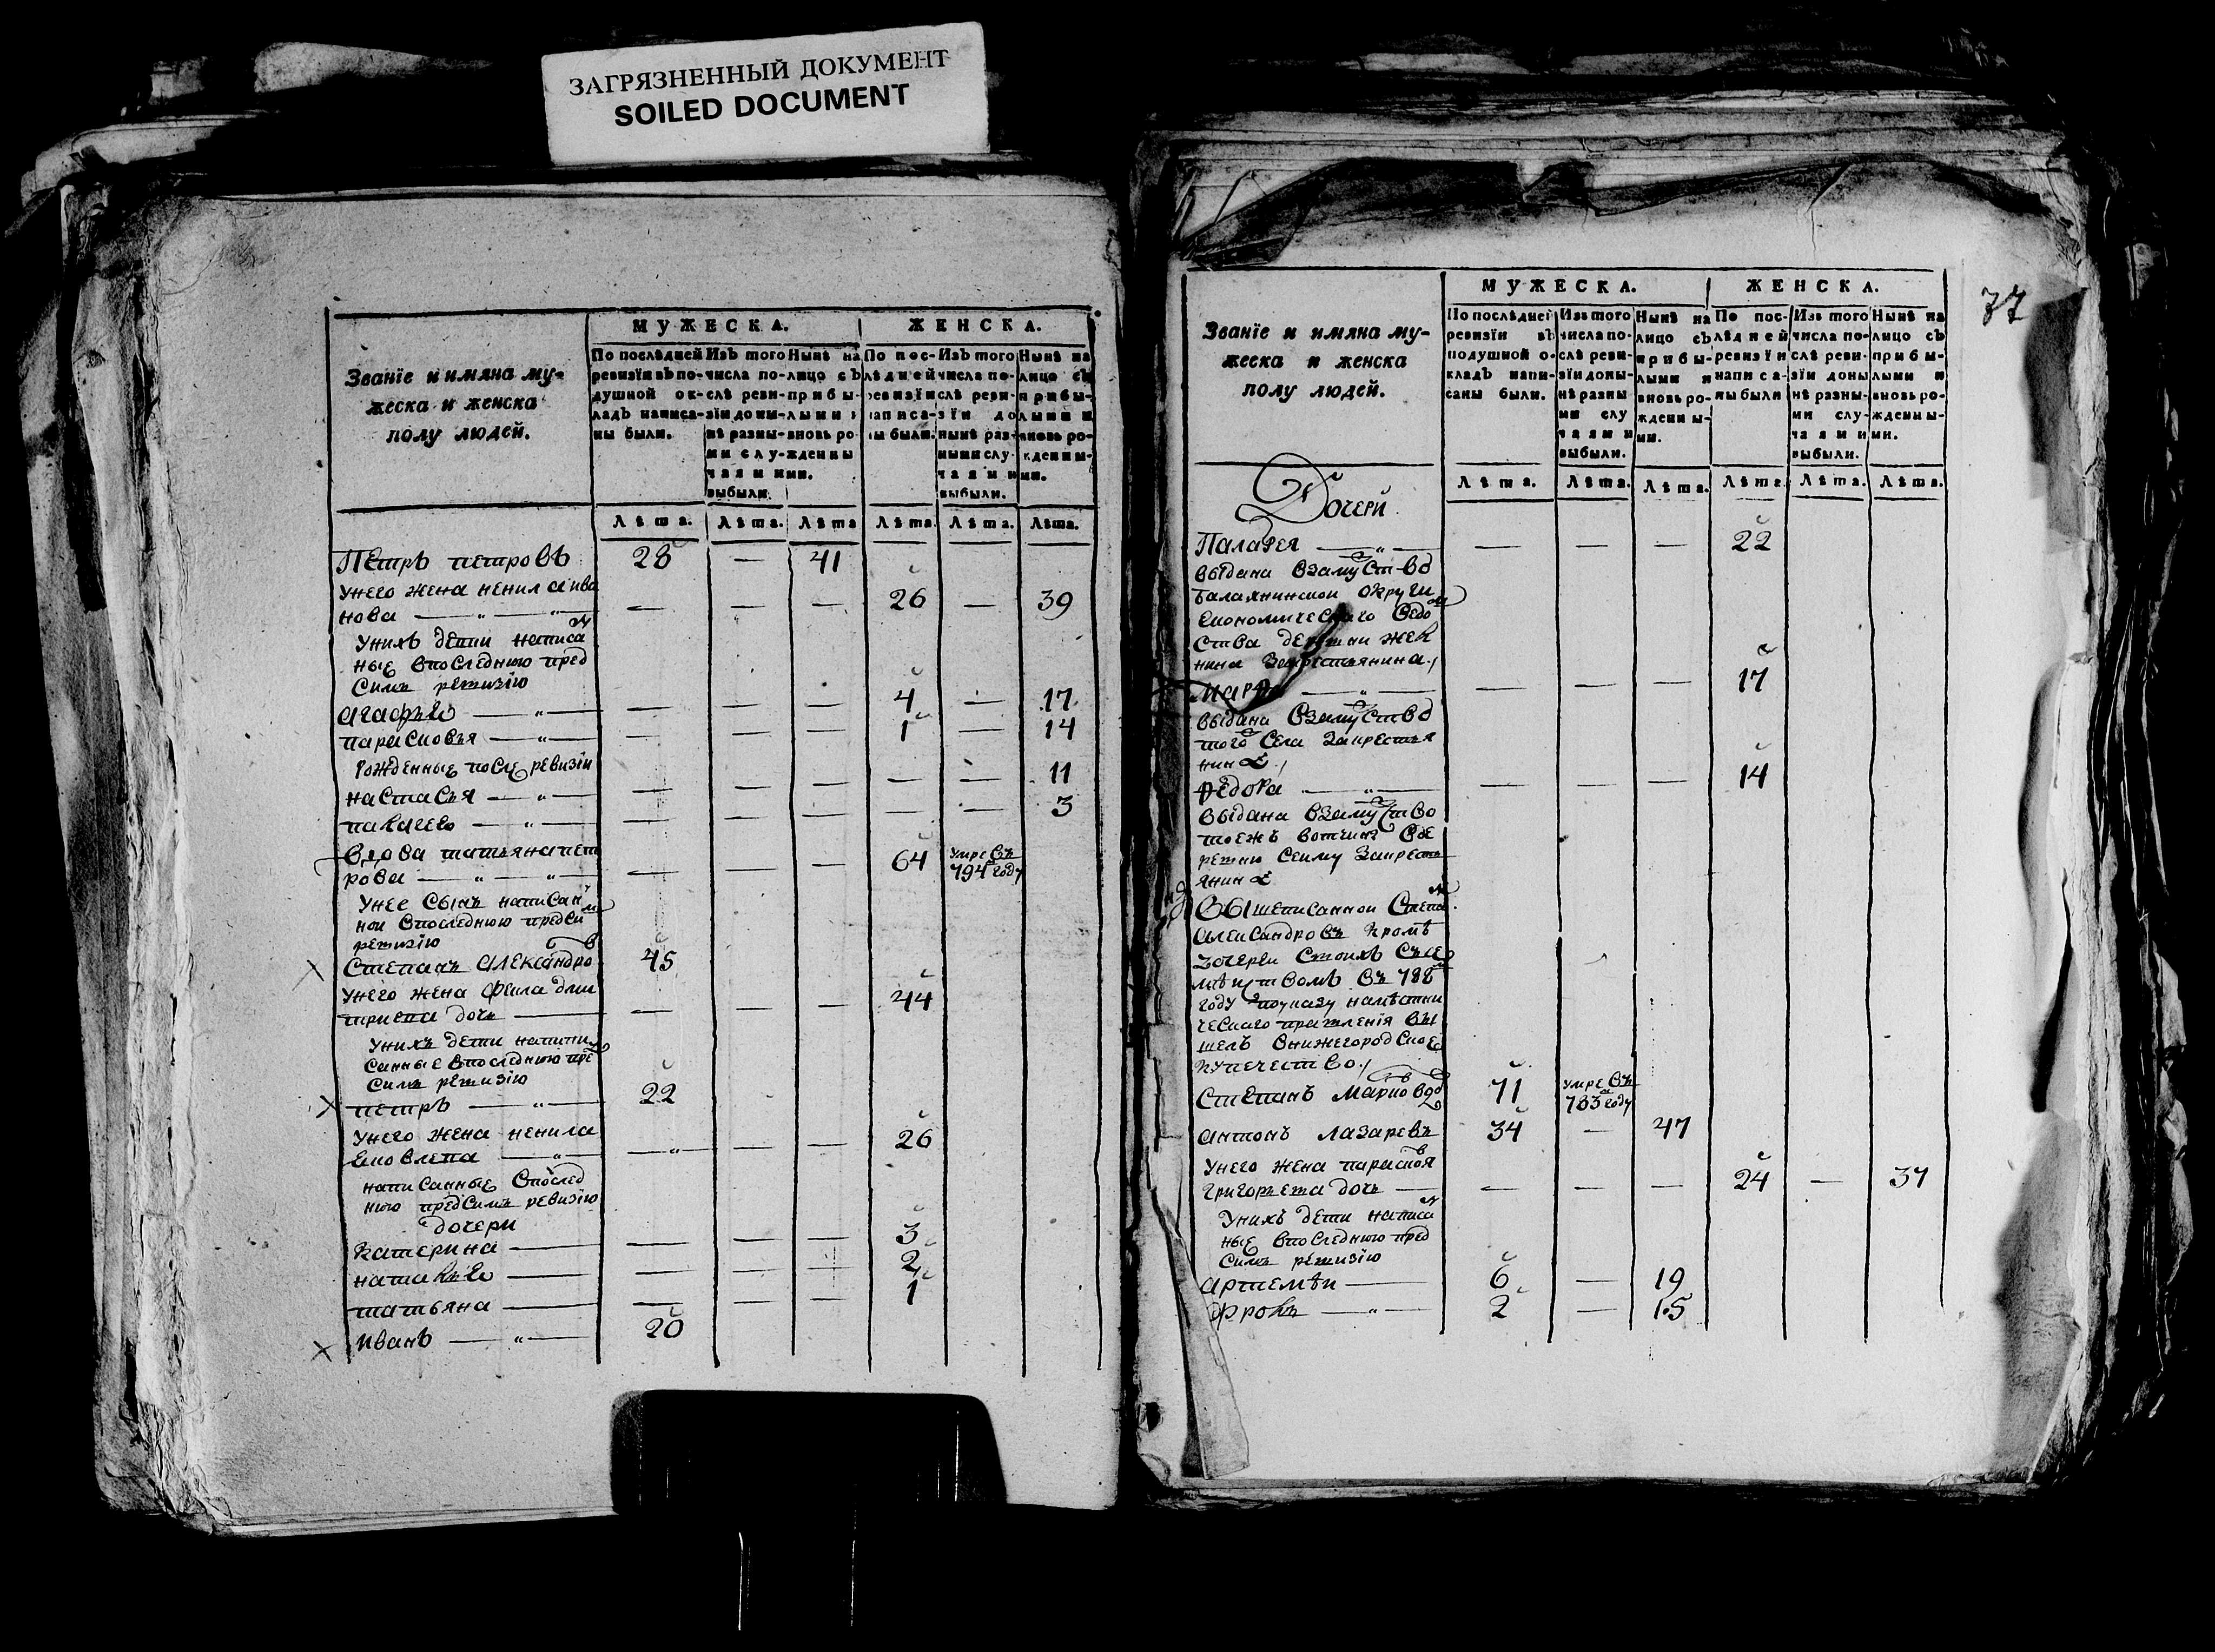 ЗАГРЯЗНЕННЫЙ ДОКУМЕНТ
SOILED DOCUMENT
МУЖЕСКА. ЖЕНСКА.
Званїе и имяна му-
жеска и женска
полу людей.
По послѣдней ревизїи въ по-душной ок-ладъ написа-ны были.
Изъ того числа по-слѣ реви-зїи до ны-нѣ разны-ми слу-чаями выбыли.
Нынѣ на лицо съ прибы-лыми и вновь ро-жденны ми.
По пос-лѣдней ревизїи написа-ны были.
Изъ того числа по-слѣ реви-зїи до нынѣ раз-ными слу-чаями выбыли.
Нынѣ на лицо съ прибы-лыми и вновь ро-жденны-ми.
Лѣта. Лѣта. Лѣта Лѣта. Лѣта. Лѣта.
Петръ петровъ 28 — 41
Унего жена ненила ива
нова — — — 26 — 39
Унихъ дети написа
ные впоследнюю пред
Симъ ревизїю
агафья — — — 4 — 17
парасковья — — — 1 — 14
Рожденные после ревизїи
настасья — — — — — 11
палагея — — — — — 3
Вдова татьяна пет
рова — — — 64 умре въ 794 году
Унее Сынъ написан
ной впоследнюю предси
ревизїю
Степанъ александро 45
Унего жена Фекла дми
триева дочь — — — 44
Унихъ дети напи
санные впоследнюю пре
симъ ревизїю
петръ 22
Унего жена ненила
— — — 26
написанные впослед
нюю предсимъ ревизїю
дочери
Катерина — — — 3
наталья — — — 2
татьяна — — — 1
Иванъ 20
37
МУЖЕСКА. ЖЕНСКА.
Званїе и имяна му-
жеска и женска
полу людей.
По послѣдней ревизїи въ подушной о-кладъ напи-саны были.
Изъ того числа по-слѣ реви-зїи до ны-нѣ разны ми слу чаями выбыли.
Нынѣ на лицо съ прибы-лыми и вновь ро-жденны-ми.
По пос-лѣдней ревизїи написа-ны были
Изъ того числа по-слѣ реви-зїи до ны нѣ разны-ми слу-чаями выбыли.
Нынѣ на лицо съ прибы-лыми и вновь ро-жденны-ми.
Лѣта. Лѣта. Лѣта. Лѣта. Лѣта. Лѣта.
Дочери
Палагея — — — 22
выдана взамуство
балахнинской округи
Економическаго ведо
ства
нина закрестьянина
Марфа — — — 17
выдана взамуство
того села закрестья
нина
Федора — — — 14
выдана взамуство
тоежъ вотчины вде
ревню закресть
янина
Вышеписанной Степа
александровъ кромѣ
дочерей Стоихъ Съсе
мѣйством въ 788
году поуказу намѣстни
ческаго правленїя вы
шелъ внижегородское
купечество
Степанъ Марковъ 71 умре въ 783 году
антонъ лазаревъ 34 — 47
Унего жена парасковя
григорьева дочь — — — 24 — 37
Унихъ дети написа
ные впоследнюю пред
симъ ревизїю
артемѣй 6 — 19
Фролъ 2 — 15